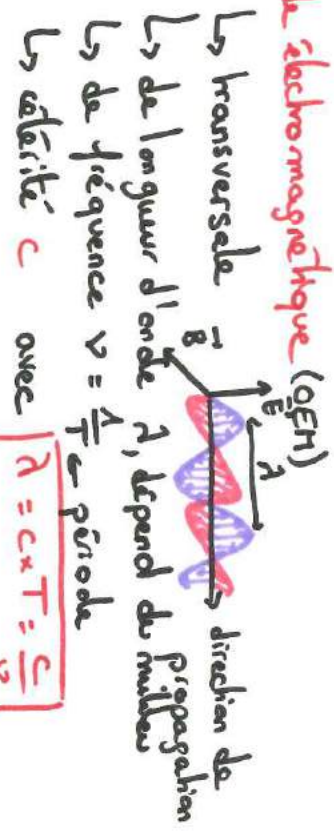 de électromagnétique (OEM)
↳ transversale
B⃗
E⃗
λ
direction de
propagation
↳ de longueur d'onde λ, dépend du milieu
↳ de fréquence ν = 1/T ← période
↳ célérité c avec λ = c × T = c/ν